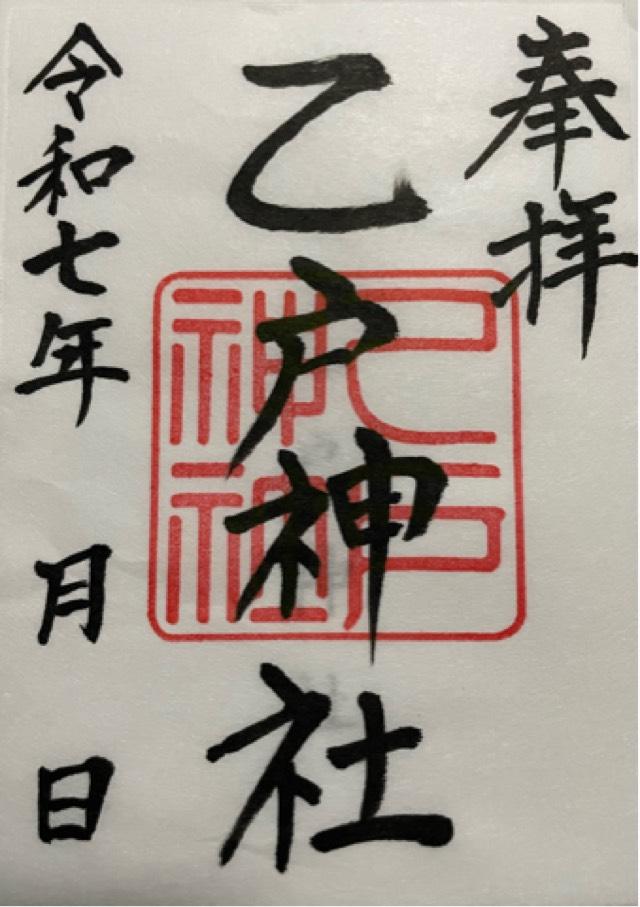 奉拝
乙戸神社
乙戸
神社
令和七年 月 日